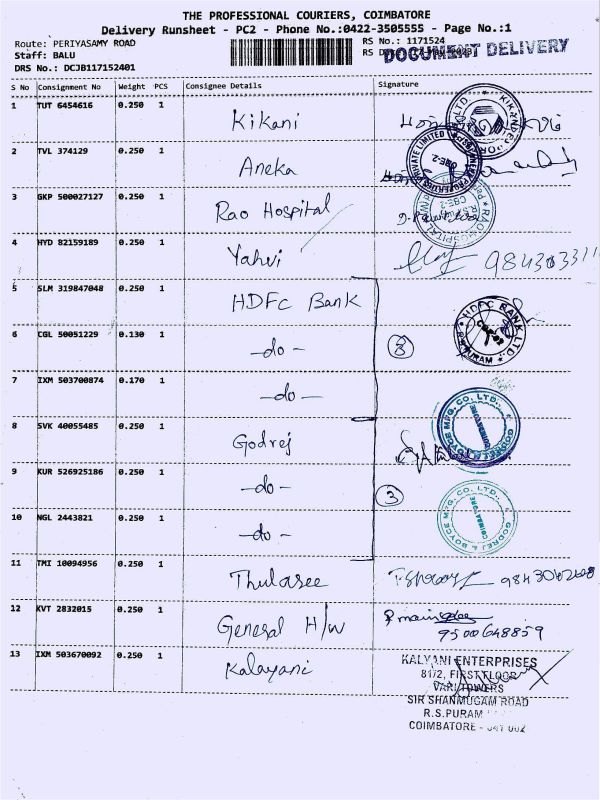 THE PROFESSIONAL COURIERS, COIMBATORE
Delivery Runsheet - PC2 - Phone No.:0422-3505555 - Page No.:1
Route: PERIYASAMY ROAD
RS No.: 1171524
Staff: BALU
DOCUMENT DELIVERY
DRS No.: DCJB117152401
S No Consignment No Weight PCS Consignee Details Signature
1 TUT 6454616 0.250 1 Kikani
2 TVL 374129 0.250 1 Aneka
3 GKP 500027127 0.250 1 Rao Hospital
4 HYD 82159189 0.250 1 Yahvi
5 SLM 319847048 0.250 1 HDFC Bank
HDFC BANK LTD.
6 CGL 50051229 0.130 1 -do-
7 IXM 503700874 0.170 1 -do-
8 SVK 40055485 0.250 1 Godrej
GODREJ & BOYCE MFG. CO. LTD.,
COIMBATORE
9 KUR 526925186 0.250 1 -do-
3
10 NGL 2443821 0.250 1 -do-
GODREJ & BOYCE MFG. CO. LTD.,
COIMBATORE
11 TMI 10094956 0.250 1 Thulasee
12 KVT 2832015 0.250 1 General H/w
9500648859
13 IXM 503670092 0.250 1 Kalayani
KALYANI ENTERPRISES
81/2, FIRST FLOOR
VARI TOWERS
SIR SHANMUGAM ROAD
R.S.PURAM
COIMBATORE - 641 002